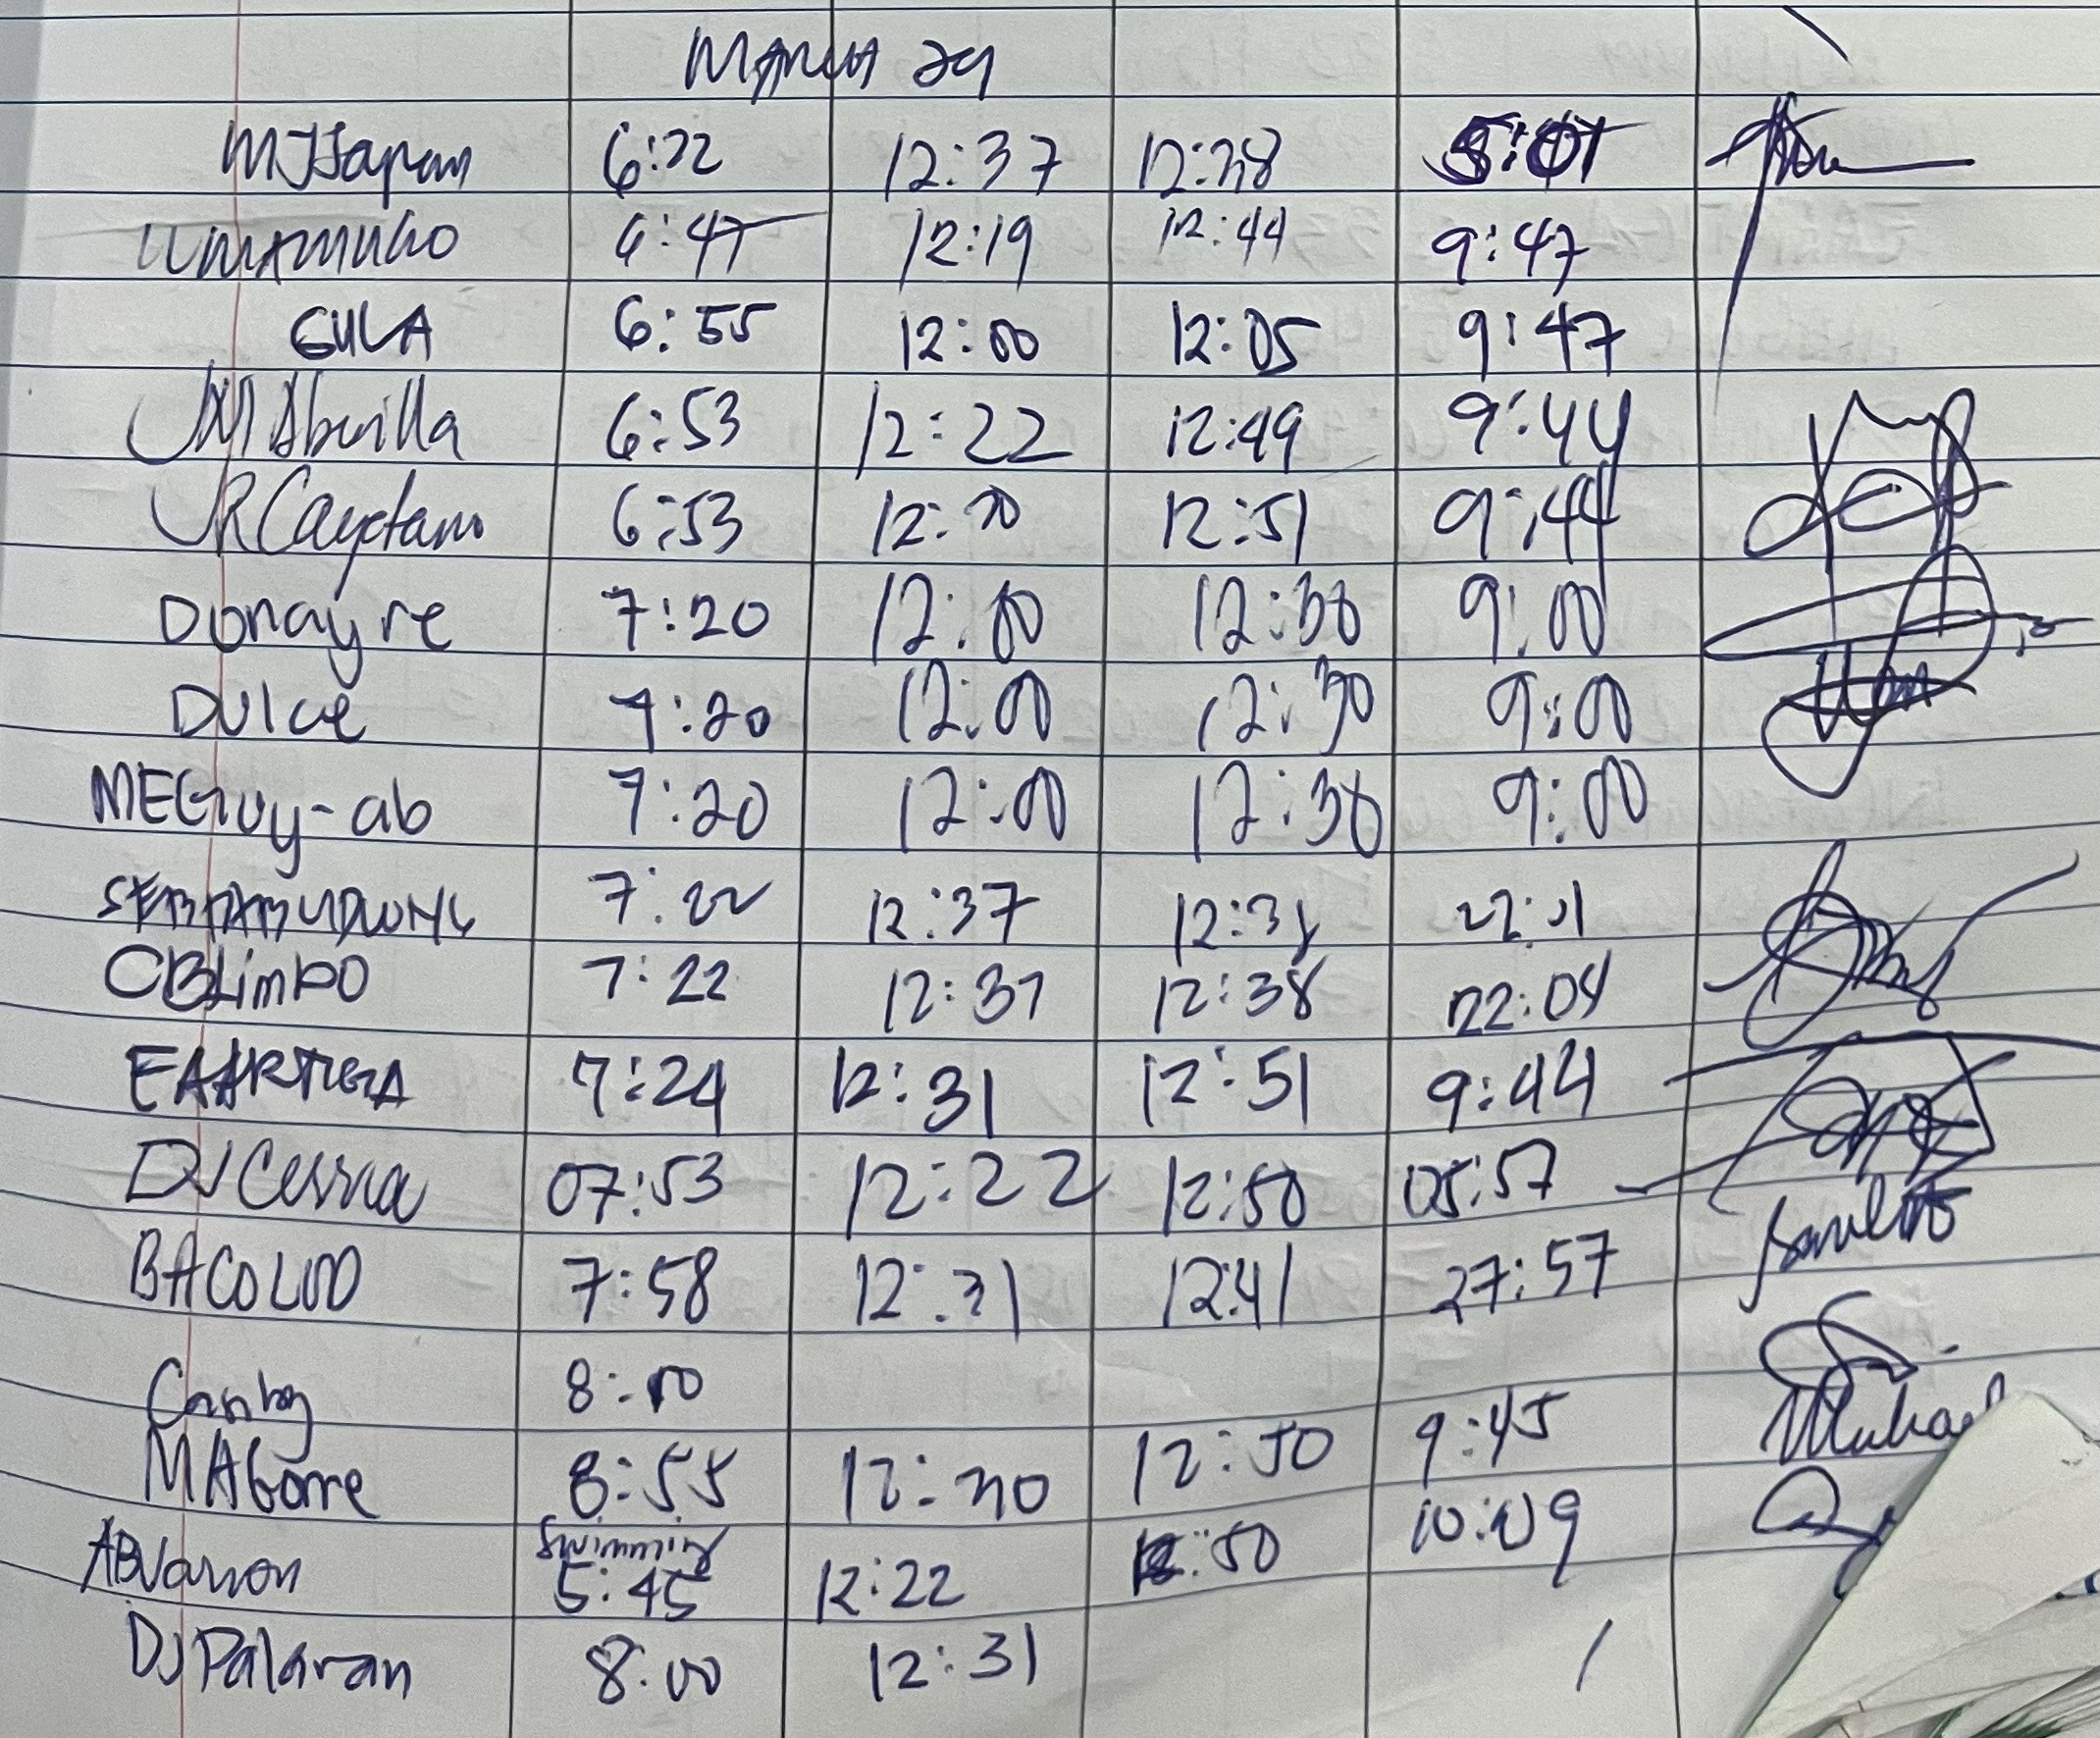 MARCH 29
MJJapan 6:22 12:37 12:38 5:01
6:47 12:19 12:44 9:47
GULA 6:55 12:00 12:05 9:47
JM Abuilla 6:53 12:22 12:49 9:44
JRCayetano 6:53 12:30 12:51 9:44
Donayre 7:20 12:00 12:30 9:00
Dulce 7:20 12:00 12:30 9:00
MEGuy-ab 7:20 12:00 12:30 9:00
7:22 12:37 12:38 22:01
CBLimbo 7:22 12:37 12:38 22:04
EAARTIGA 7:24 12:31 12:51 9:44
DJ 07:53 12:22 12:50 05:57
BACOLOD 7:58 12:31 12:41 27:57
8:00
MAGorre 8:55 12:30 12:50 9:45
Swimming
5:45 12:22 12:50 10:09
DJPalaran 8:00 12:31